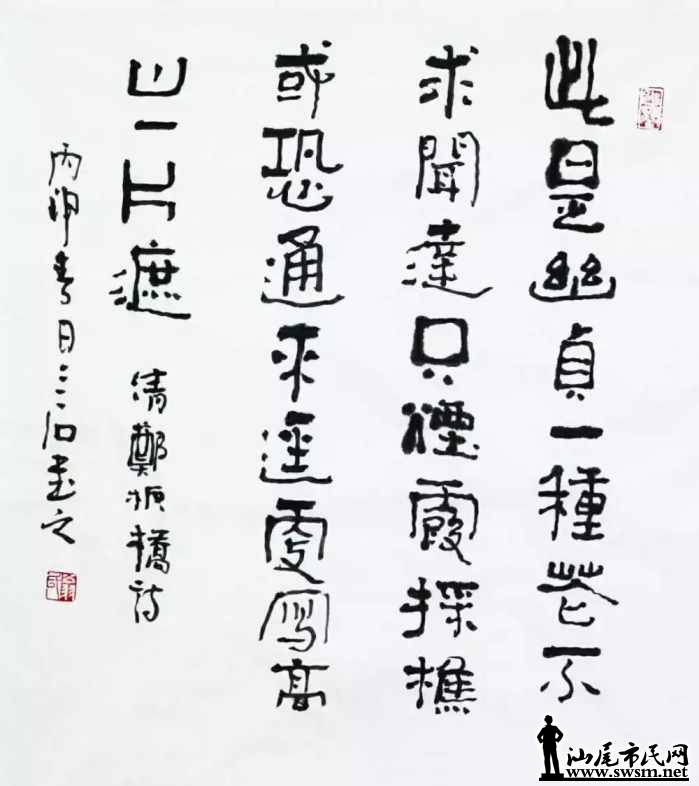 此是幽貞一種花不
求聞達只煙霞採樵
或恐通来逕更寫高
山一片遮 清鄭板橋詩
丙申春日三石書之
汕尾市民网
www.swsm.net